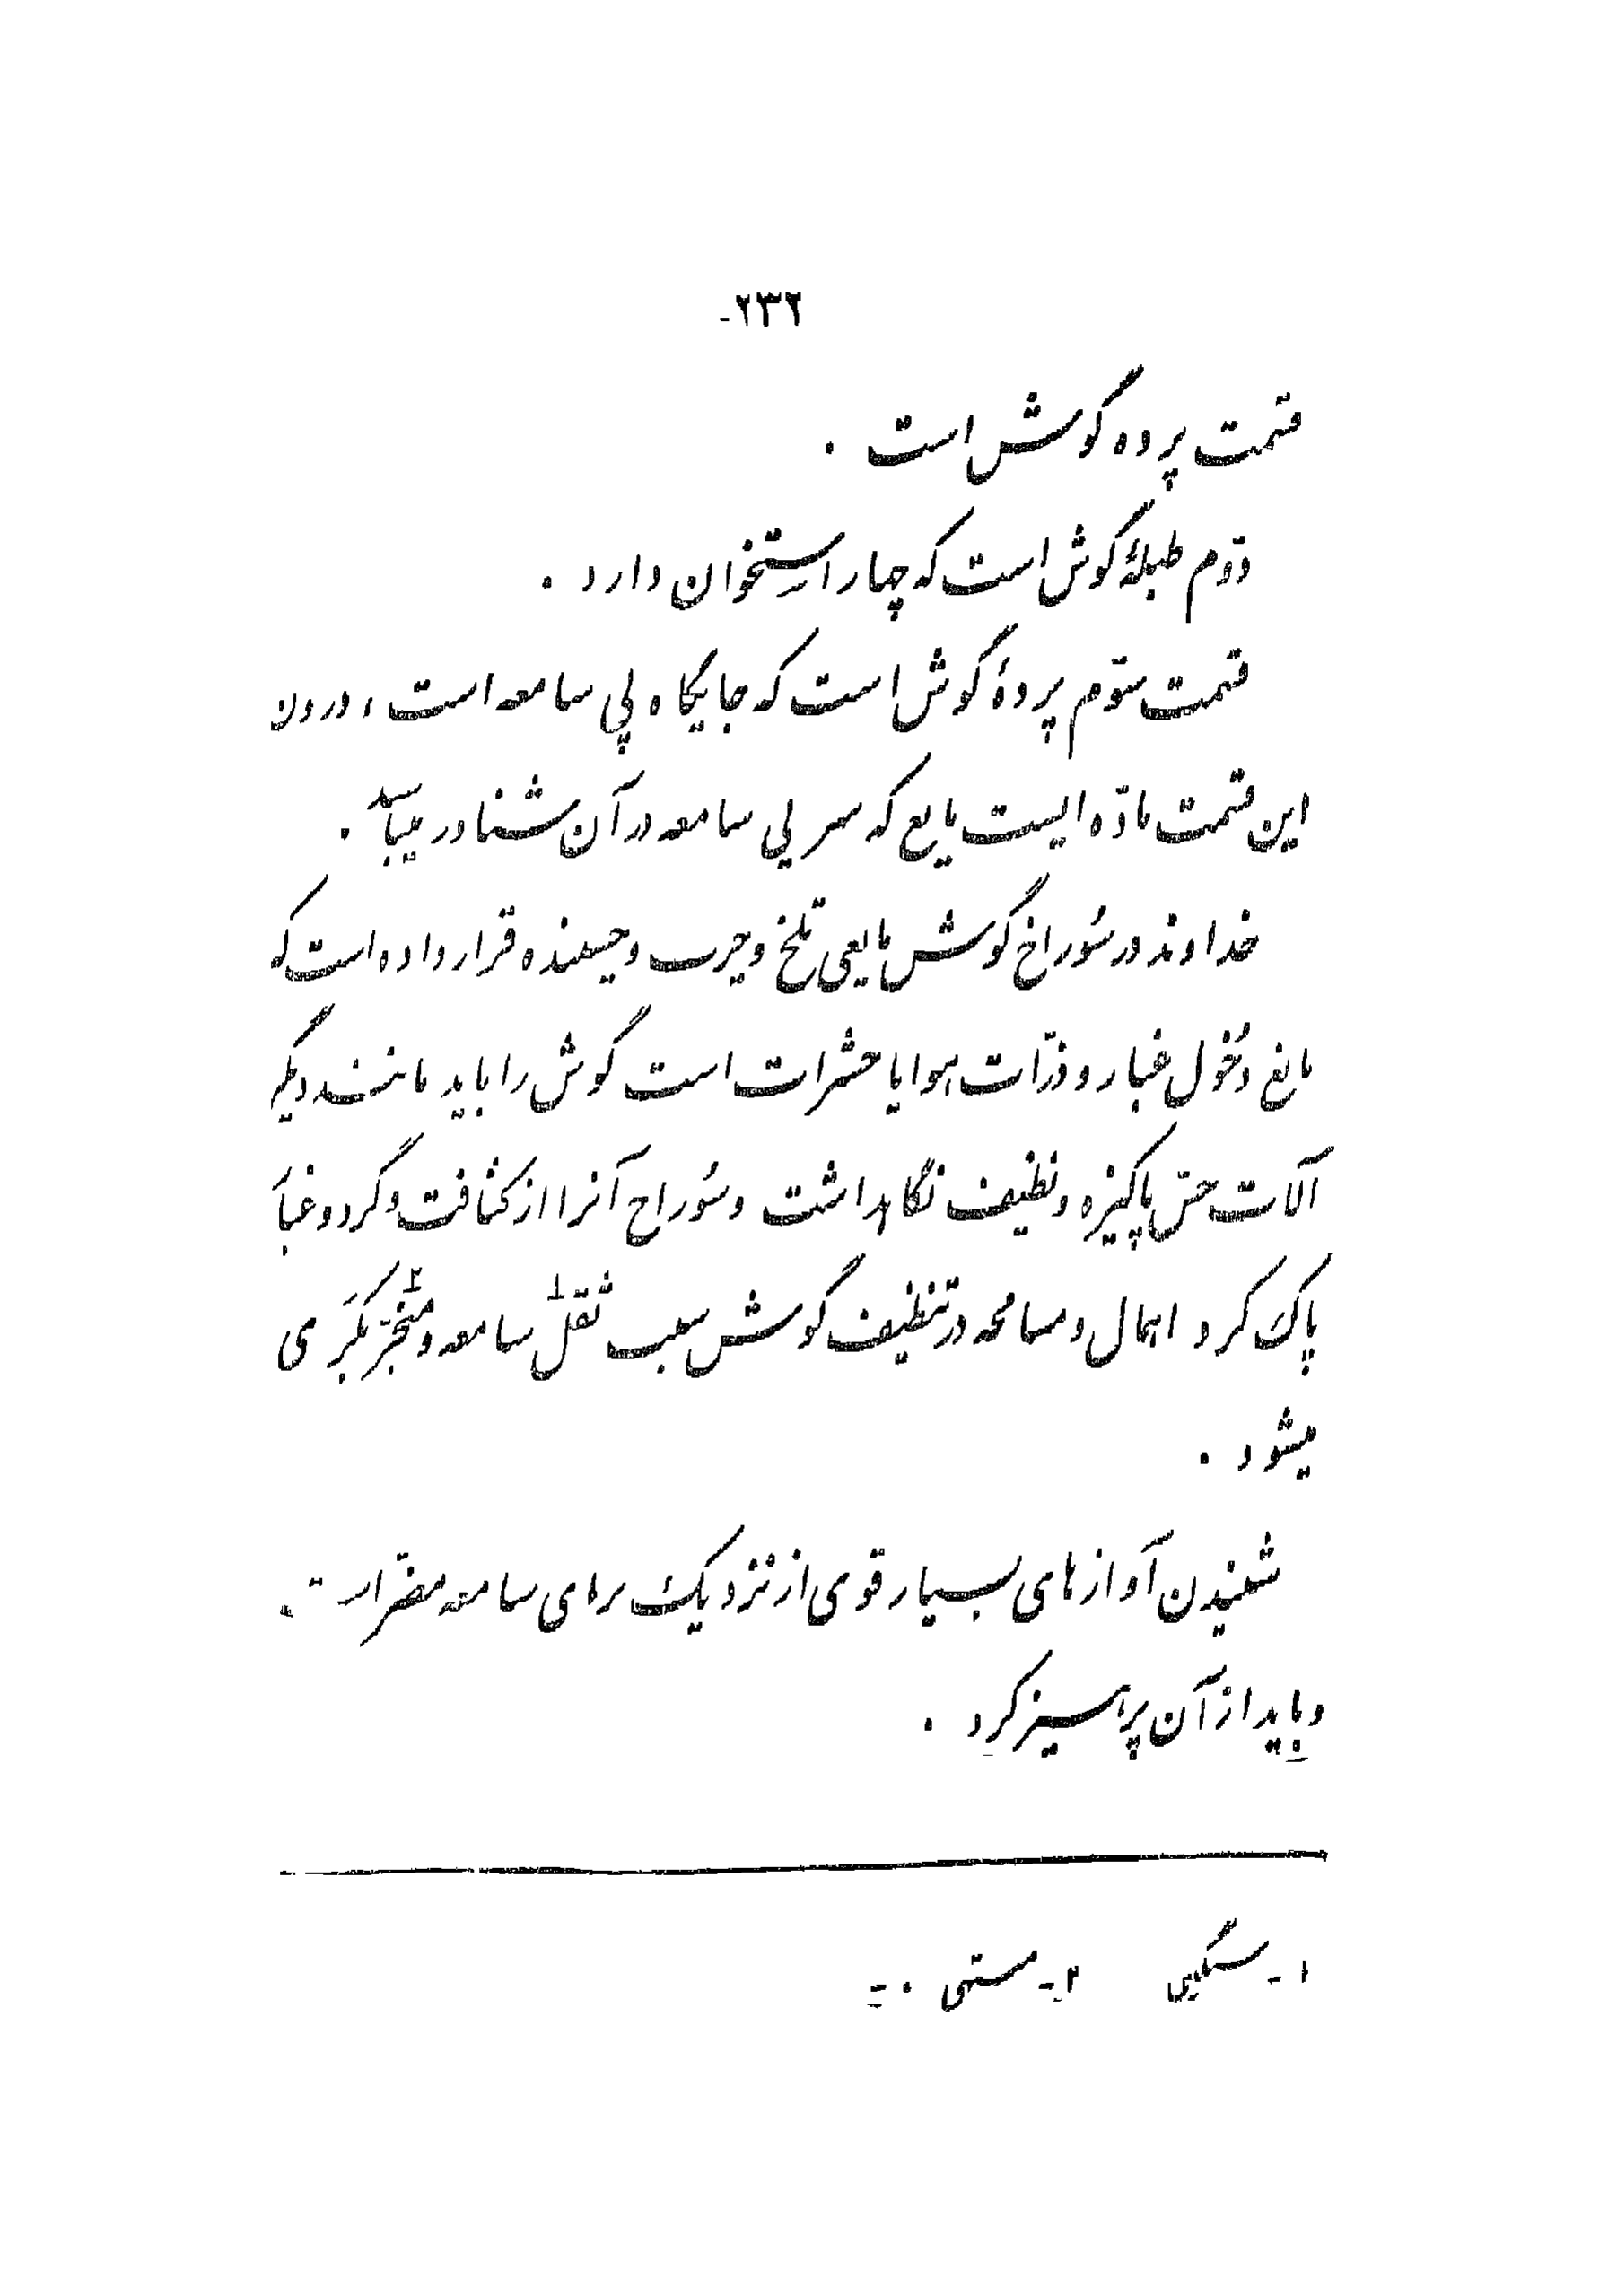 -۲۳۲
قسمت پرده گوش است .
دوّم طبلهٔ گوش است که چهار استخوان دارد .
قسمت سوّم پردهٔ گوش است که جایگاه پی سامعه است ، درون
این قسمت مادّه ایست مایع که سر پی سامعه در آن شناور میباشد .
خداوند در سُوراخ گوش مایعی تلخ و چرب و چسبنده قرار داده است که
مانع دُخُول غبار و ذرّات هوا یا حشرات است گوش را باید مانند دیگر
آلات حسّ پاکیزه و نظیف نگاهداشت و سُوراخ آنرا از کثافت و گرد و غبار
پاک کرد اهمال و مسامحه در تنظیف گوش سبب ثقل۱ سامعه و منجرّ۲ بکَرَی
میشود .
شنیدن آوازهای بسیار قوی از نزدیک برای سامعه مضرّ است .
و باید از آن پرهیز کرد .
۱- سنگینی ۲- منتهی .